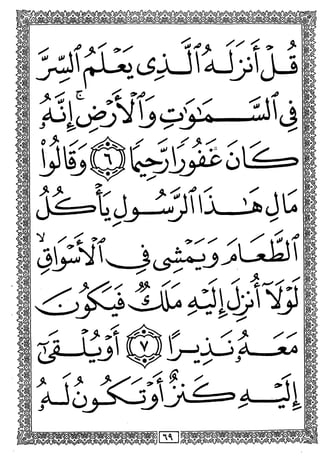 قُلْ أَنزَلَهُ ٱلَّذِى يَعْلَمُ ٱلسِّرَّ
فِى ٱلسَّمَٰوَٰتِ وَٱلْأَرْضِ ۚ إِنَّهُۥ
كَانَ غَفُورًا رَّحِيمًا ٦ وَقَالُوا۟
مَالِ هَٰذَا ٱلرَّسُولِ يَأْكُلُ
ٱلطَّعَامَ وَيَمْشِى فِى ٱلْأَسْوَاقِ ۙ
لَوْلَآ أُنزِلَ إِلَيْهِ مَلَكٌ فَيَكُونَ
مَعَهُۥ نَذِيرًا ٧ أَوْ يُلْقَىٰٓ
إِلَيْهِ كَنزٌ أَوْ تَكُونُ لَهُۥ
٦٩